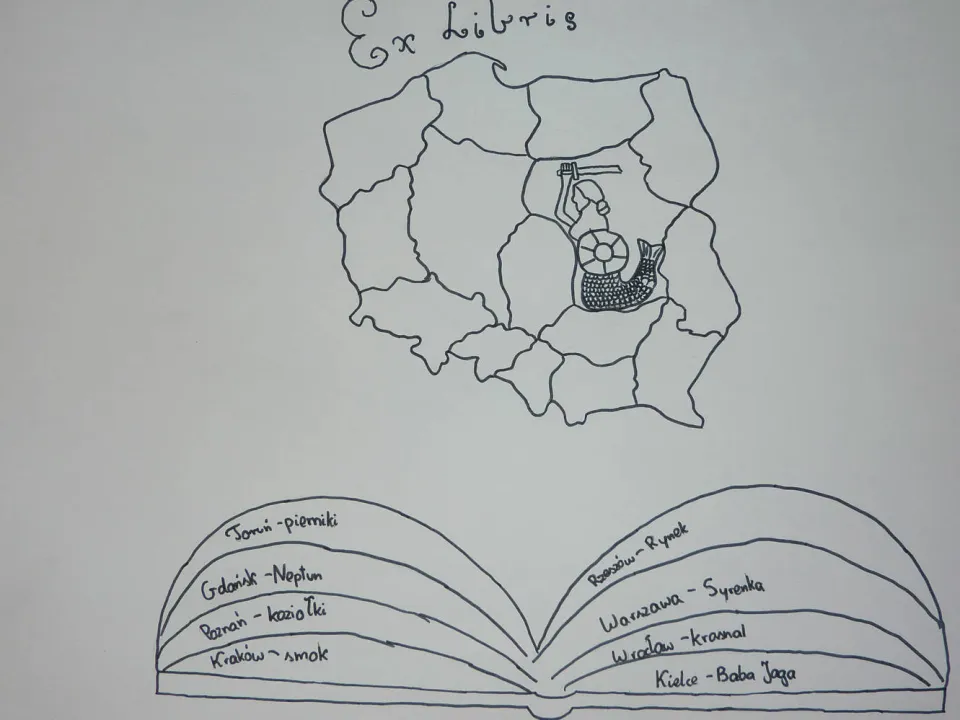 Ex Libris
Toruń - pierniki
Gdańsk - Neptun
Poznań - koziołki
Kraków - smok
Rzeszów - Rynek
Warszawa - Syrenka
Wrocław - krasnal
Kielce - Baba Jaga